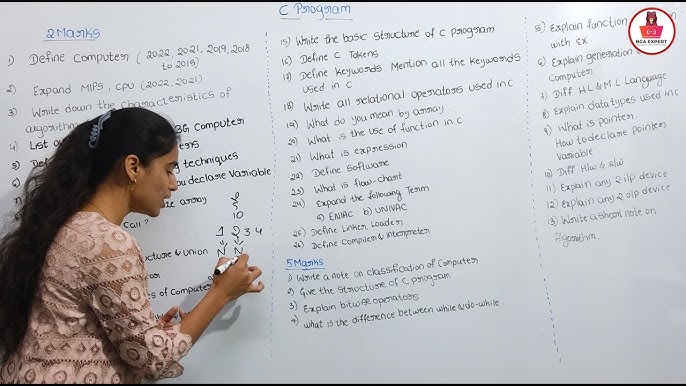 C Program
2 Marks
1) Define Computer (2022, 2021, 2019, 2018
to 2015)
2) Expand MIPS, CPU (2022, 2021)
3) Write down the characteristics of
algorithm
4) List 3G Computer
5) techniques
you declare Variable
array
Call ?
10
1 2 3 4
Structure & Union
of Computer
15) Write the basic structure of C program
16) Define C Tokens
17) Define keywords Mention all the keywords
used in C
18) Write all relational operators used in C
19) What do you mean by array
20) What is the use of function in C
21) What is expression
22) Define Software
23) What is flow-chart
24) Expand the following Term
a) ENIAC b) UNIVAC
25) Define Linker, Loader
26) Define Compiler & interpreter
5 Marks
1) Write a note on classification of Computer
2) Give the structure of C program
3) Explain bitwise operators
4) What is the difference between while & do-while
5) Explain function
with Ex.
6) Explain generation
Computer
7) Diff HL & ML Language
8) Explain data types used in C
9) What is pointer.
How to declare pointer
Variable
10) Diff H/w & S/w
11) Explain any 2 i/p device
12) Explain any 2 o/p device
13) Write a short note on
Algorithm.
BCA EXPERT